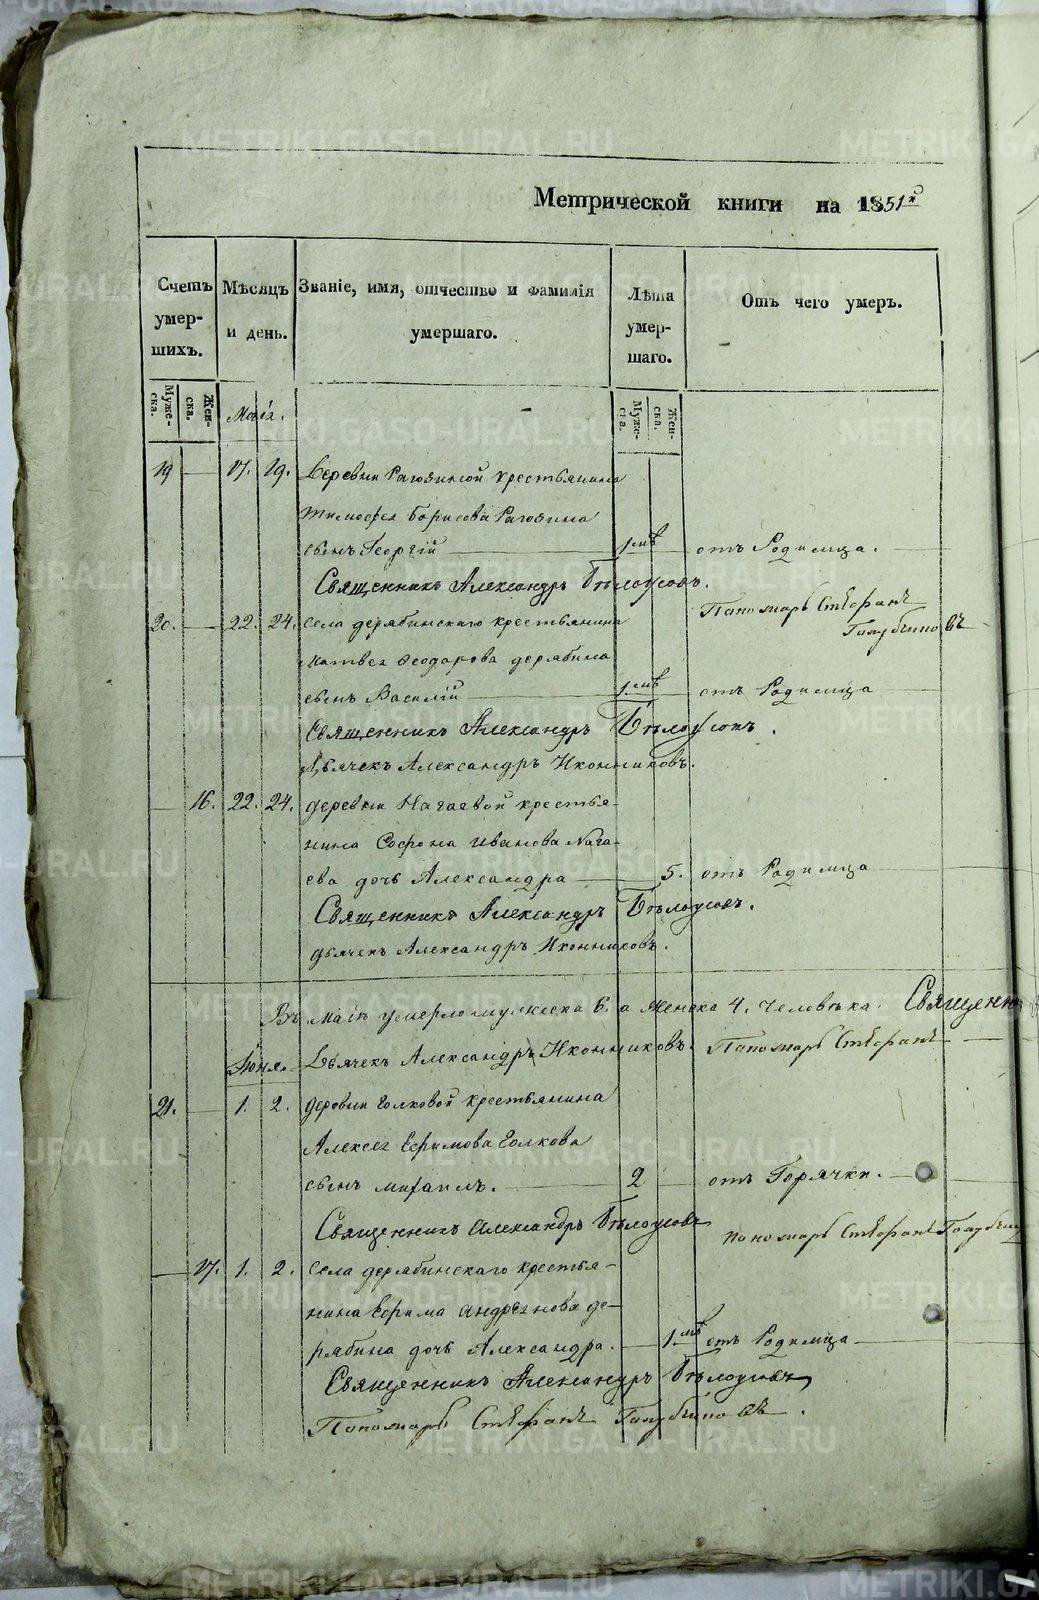 Метрической книги на 1851й
Счетъ умер-шихъ.
Мѣсяцъ и день.
Званіе, имя, отчество и фамилія умершаго.
Лѣта умер-шаго.
Отъ чего умеръ.
Муже-ска.
Жен-ска.
Муже-ска.
Жен-ска.
Маія.
19 17. 19. Деревни Рагозиной крестьянина
Тимофея Борисова Рагозина
сынъ Георгій 1 мѣ отъ Родимца.
Священникъ Александръ Бѣлоусовъ.
Пономарь Стефанъ
20. 22. 24. Села дерябинскаго крестьянина
матвея Феодорова дерябина
сынъ Василій 1 мѣ отъ Родимца
Священникъ Александръ Бѣлоусовъ.
Дьячекъ Александръ Иконниковъ.
16. 22. 24. деревни Нагаевой крестья-
нина Софрона Иванова Нага-
ева дочь Александра 5. отъ Родимца
Священникъ Александръ Бѣлоусовъ.
дьячекъ Александръ Иконниковъ.
Въ маіѣ умерло мужеска 6. а женска 4. человѣка. Священн
Іюня. Дьячекъ Александръ Иконниковъ. Пономарь Стефанъ
21. 1. 2. деревни Голковой крестьянина
Алексея Ефимова Голкова
сынъ михаилъ. 2 отъ Горячки.
Священникъ Александръ Бѣлоусовъ
пономарь Стефанъ
17. 1. 2. Села дерябинскаго крестья-
нина Ефима андреянова де-
рябина дочь Александра. 1 мѣ отъ Родимца
Священникъ Александръ Бѣлоусовъ
Пономарь Стефанъ
METRIKI.GASO-URAL.RU